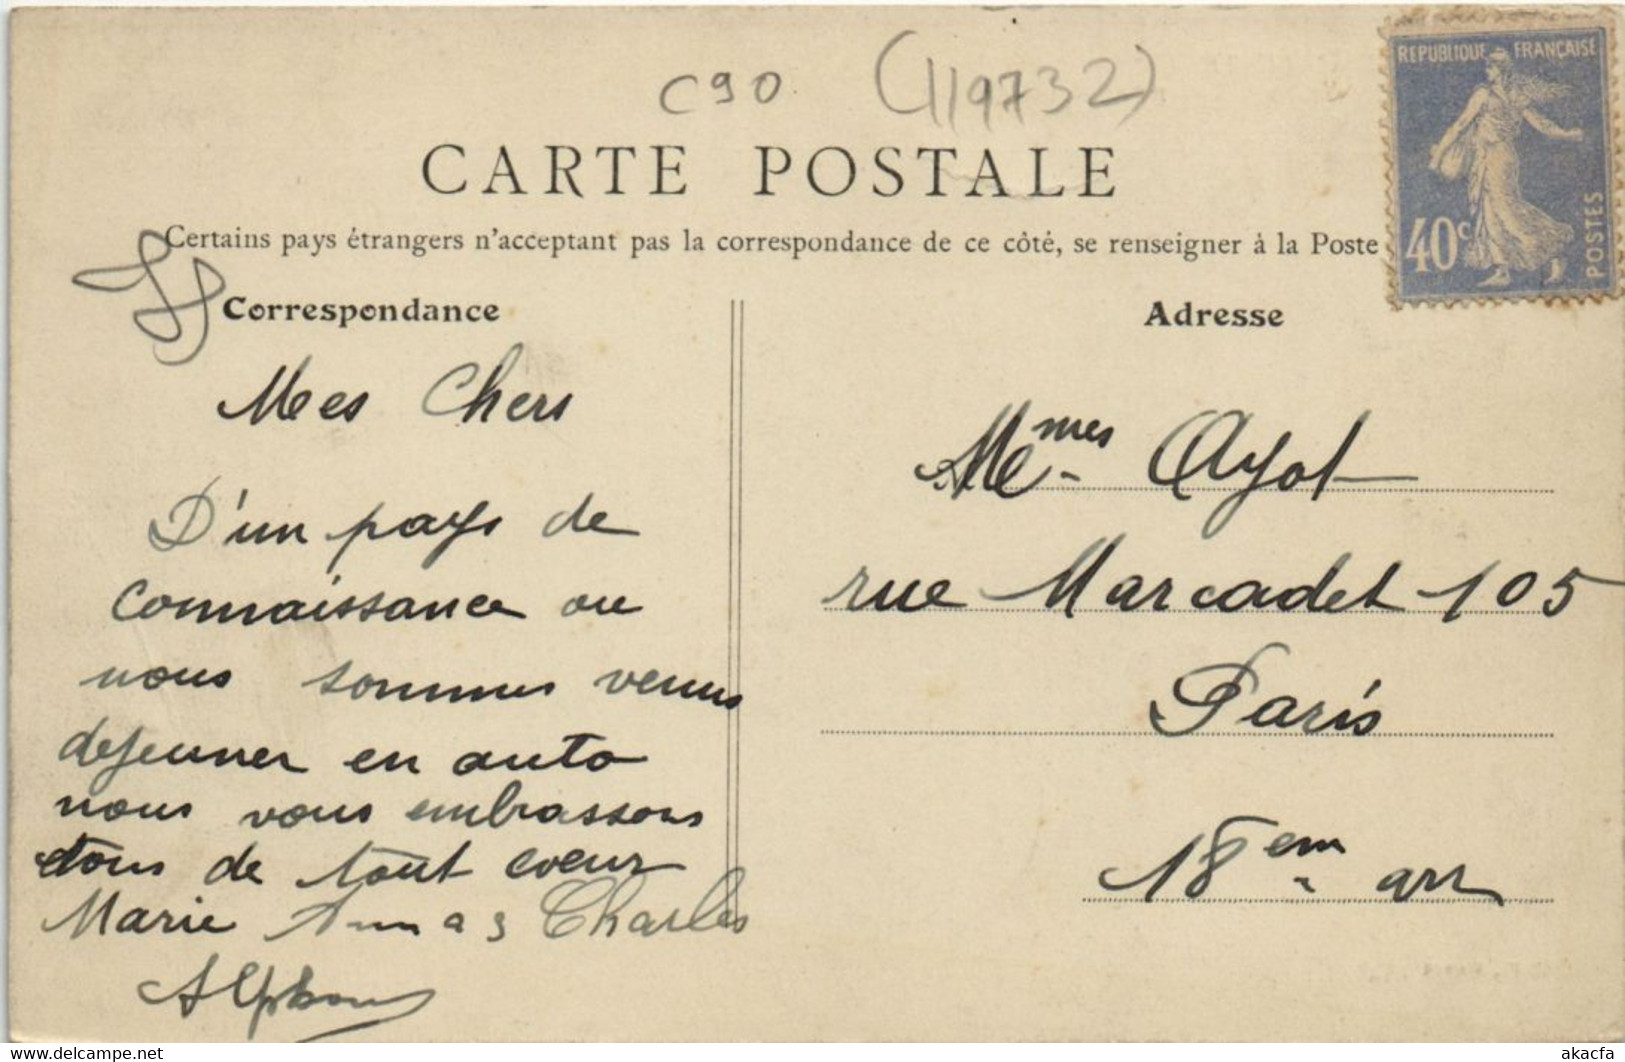 C90 (119732)
REPUBLIQUE FRANCAISE
40c
POSTES
CARTE POSTALE
Certains pays étrangers n'acceptant pas la correspondance de ce côté, se renseigner à la Poste
Correspondance
Mes Chers
D'un pays de
connaissance ou
nous sommes venus
dejeuner en auto
nous vous embrassons
tous de tout coeur
Marie Anna Charles
Alphons
Adresse
Mmes Ayot
rue Marcadet 105
Paris
18em arr
delcampe.net
akacfa